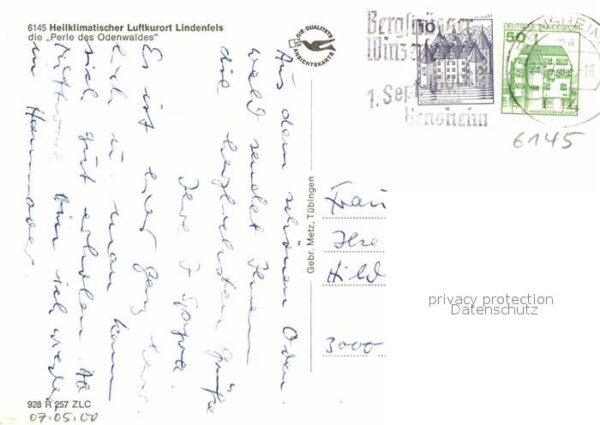 6145 Heilklimatischer Luftkurort Lindenfels
die „Perle des Odenwaldes"
DIE QUALITÄTS
ANSICHTSKARTE
Bergsträsser
Winzer
1. Sept.
Bensheim
10
DEUTSCHE BUNDESPOST
50
18
6145
Aus dem schönen Oden-
wald sendet Ihnen
die herzlichsten Grüße
Ihre J.
Es ist hier ganz
u. man kann
sich gut erholen. Ab
bin ich wieder
in Hannover
Gebr. Metz, Tübingen
Frau
Ilse
Hild
3000
privacy protection
Datenschutz
928 R 257 ZLC
07.05.00